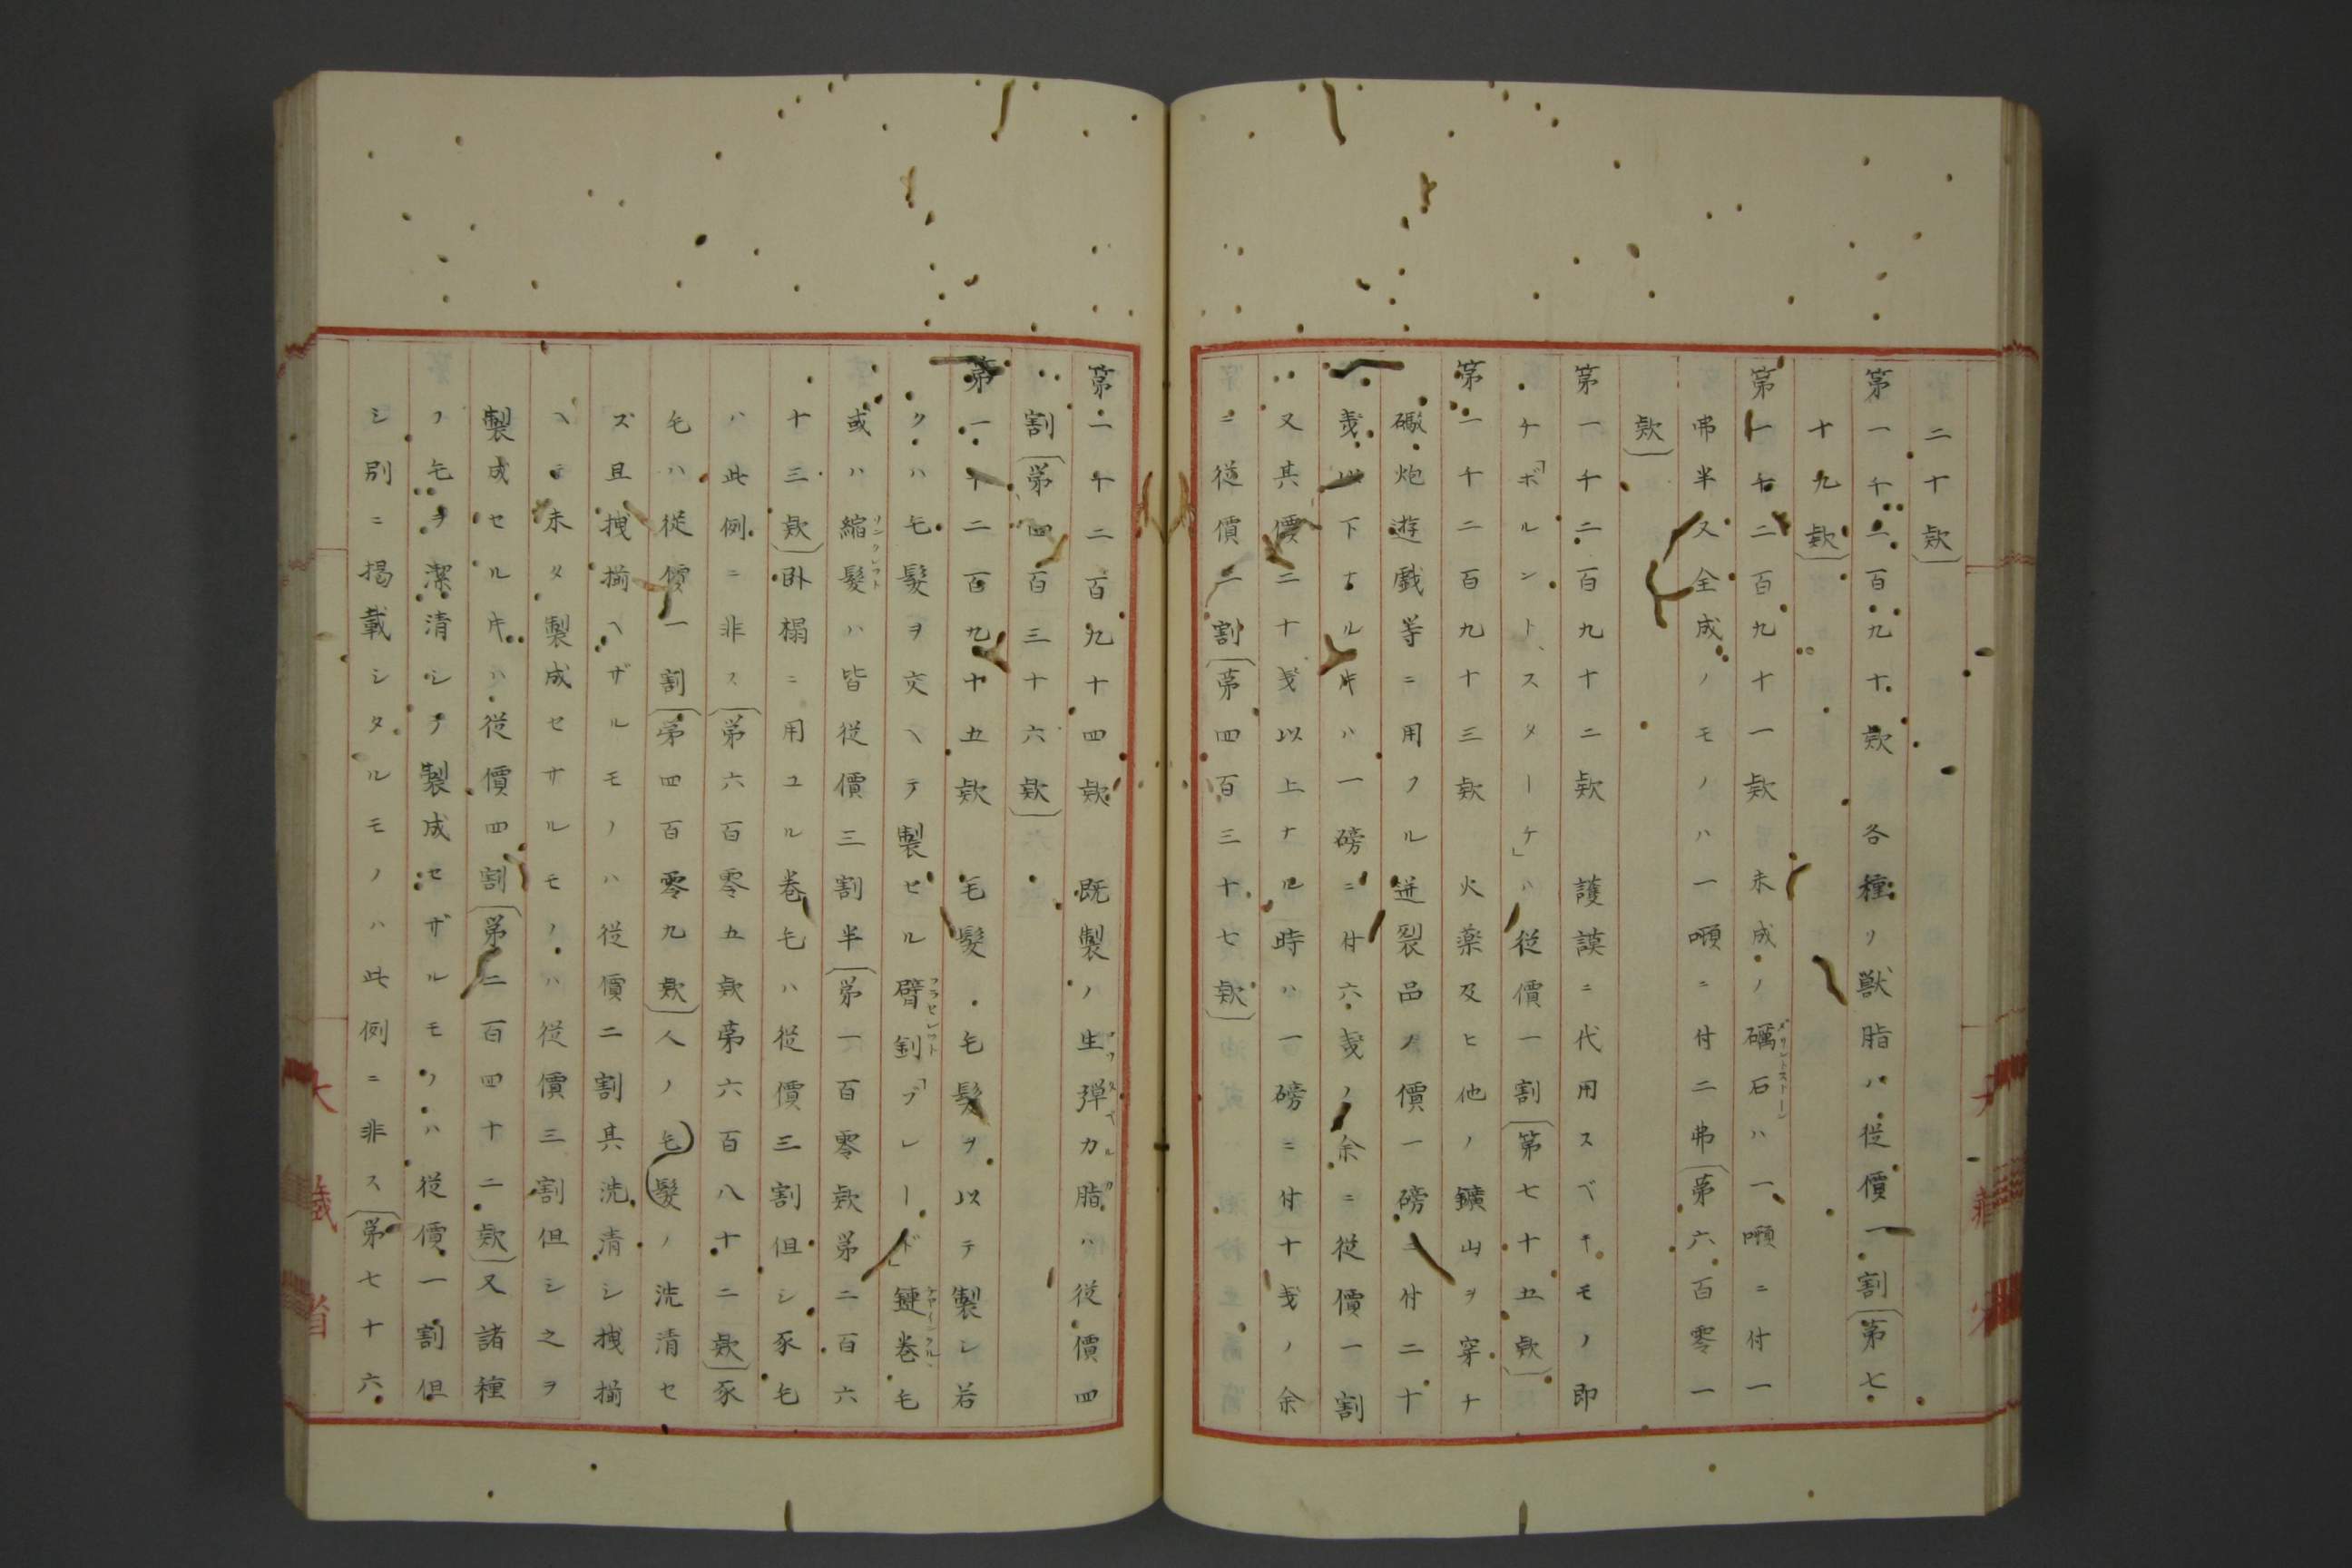 二十款〕
第一千二百九十款　各種ノ獣脂ハ従價一割〔第七
十九款〕
第一千二百九十一款　未成ノ礪石ハ一噸ニ付一
弗半又全成ノモノハ一噸ニ付二弗〔第六百零一
款〕
第一千二百九十二款　護謨ニ代用スベキモノ即
チ「ボルント、スターケ」ハ従價一割〔第七十五款〕
第一千二百九十三款　火薬及ヒ他ノ鑛山ヲ穿ナ
礮炮遊戯等ニ用フル迸裂品ノ價一磅ニ付二十
戔以下ナル片ハ一磅ニ付六戔ノ余ニ従價一割
又其價二十戔以上ナル時ハ一磅ニ付十戔ノ余
ニ従價二割〔第四百三十七款〕
第一千二百九十四款　既製ノ生弾力脂ハ従價四
割〔第四百三十六款〕
第一千二百九十五款　毛髪・毛髪ヲ以テ製シ若
クハ毛髪ヲ交ヘテ製セル臂釧「ブレード」鏈巻毛
或ハ縮髪ハ皆従價三割半〔第一百零款第二百六
十三款〕臥榻ニ用ユル巻毛ハ従價三割但シ豕毛
ハ此例ニ非ス〔第六百零五款第六百八十二款〕豕
毛ハ従價一割〔第四百零九款〕人ノ毛髪ノ洗清セ
ズ且拽揃ヘザルモノハ従價二割其洗清シ拽揃
ヘテ未タ製成セサルモノハ従價三割但シ之ヲ
製成セル片ハ従價四割〔第二百四十二款〕又諸種
ノ毛ヲ潔清シテ製成セザルモノハ従價一割但
シ別ニ掲載シタルモノハ此例ニ非ス〔第七十六